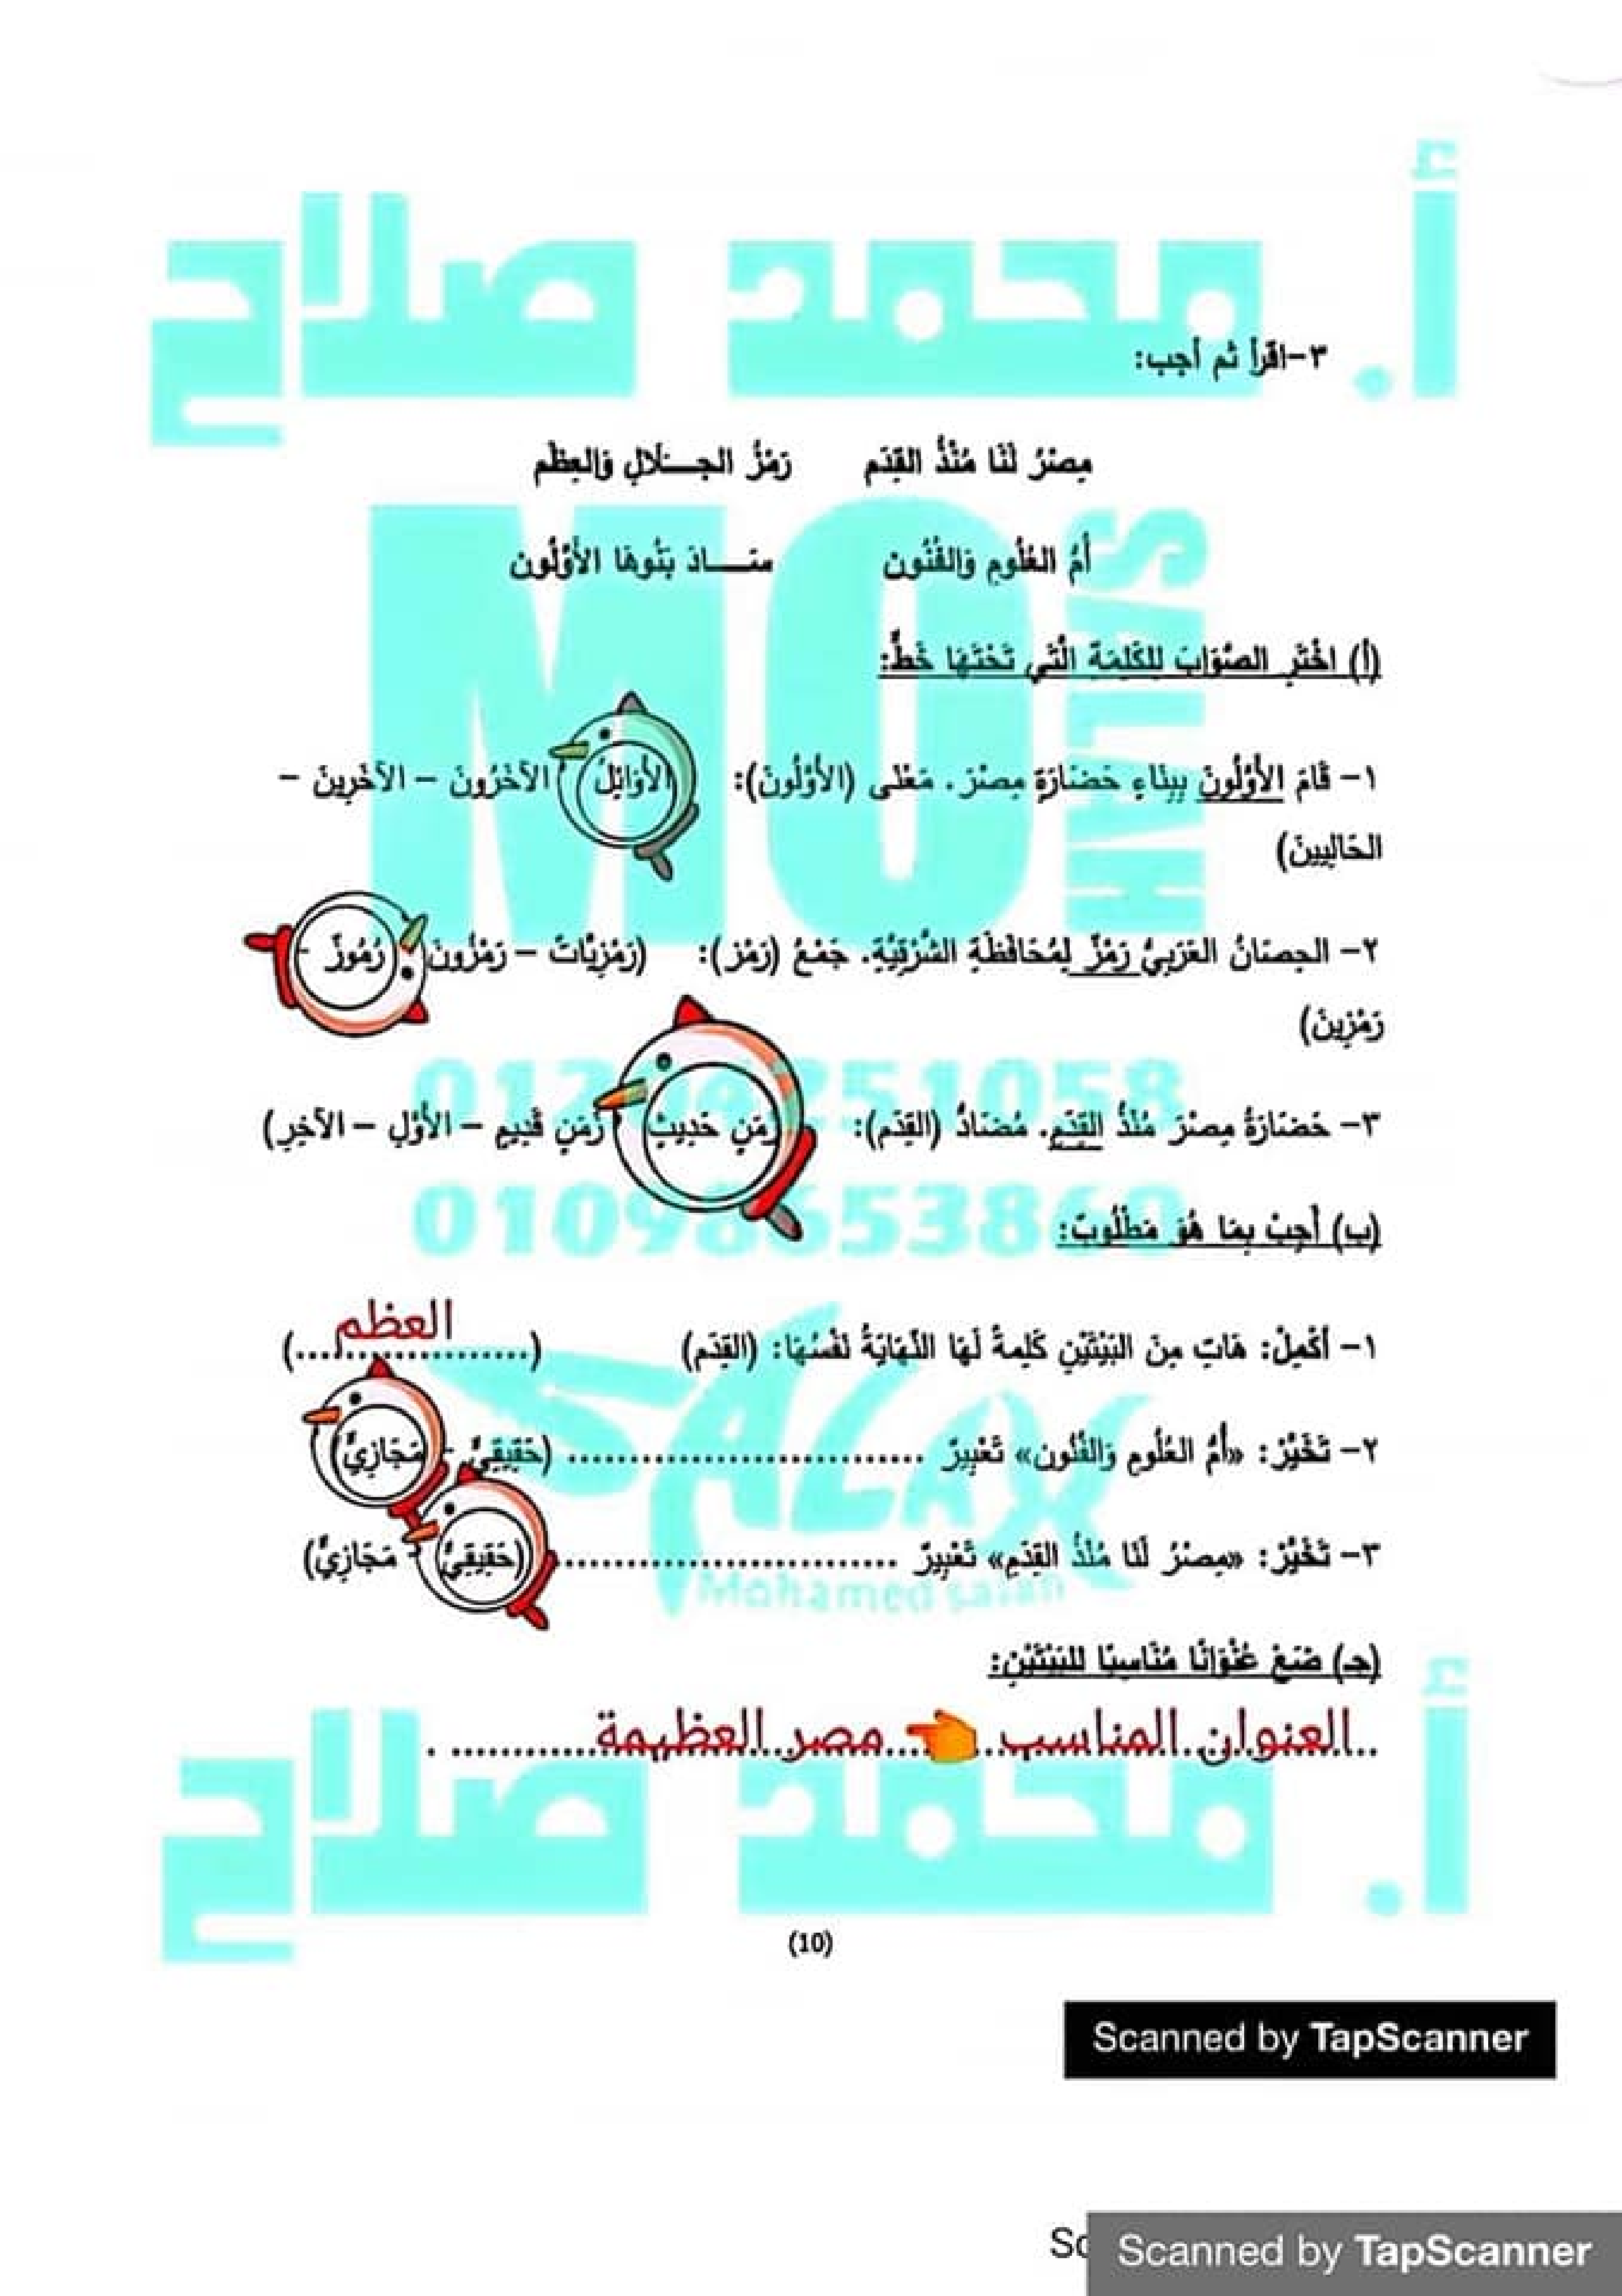 أ. محمد صلاح
٣-اقرأ ثم أجب:
مِصْرُ لَنَا مُنْذُ القِدَم رَمْزُ الجـــلالِ وَالعِظَم
أُمُّ العُلُومِ وَالفُنُون سَـــادَ بَنُوهَا الأَوَّلُون
MO
SALAH
(أ) اخْتَرِ الصَّوَابَ لِلكَلِمَةِ الَّتِي تَحْتَهَا خَطٌّ:
١- قَامَ الأَوَّلُونَ بِبِنَاءِ حَضَارَةِ مِصْرَ. مَعْنَى (الأَوَّلُونَ): الأَوَائِلُ الآخَرُونَ – الآخَرِينَ –
الحَالِيينَ)
٢- الحِصَانُ العَرَبِيُّ رَمْزٌ لِمُحَافَظَةِ الشَّرْقِيَّةِ. جَمْعُ (رَمْز): (رَمْزِيَّاتٌ – رَمْزُونَ رُمُوزٌ –
رَمْزِينَ)
٣- حَضَارَةُ مِصْرَ مُنْذُ القِدَمِ. مُضَادُّ (القِدَم): زَمَنٍ حَدِيثٍ زَمَنٍ قَدِيمٍ – الأَوَّلِ – الآخِرِ)
(ب) أَجِبْ بِمَا هُوَ مَطْلُوبٌ:
العظم
١- أَكْمِلْ: هَاتِ مِنَ البَيْتَيْنِ كَلِمَةً لَهَا النِّهَايَةُ نَفْسُهَا: (القِدَم) (....................)
٢- تَخَيَّرْ: «أُمُّ العُلُومِ وَالفُنُون» تَعْبِيرٌ .............................. (حَقِيقِيٌّ - مَجَازِيٌّ)
٣- تَخَيَّرْ: «مِصْرُ لَنَا مُنْذُ القِدَمِ» تَعْبِيرٌ .............................. (حَقِيقِيٌّ - مَجَازِيٌّ)
Mohamed salah
(جـ) ضَعْ عُنْوَانًا مُنَاسِبًا للبَيْتَيْنِ:
العنوان المناسب 👈 مصر العظيمة
أ. محمد صلاح
(10)
Scanned by TapScanner
Scanned by TapScanner